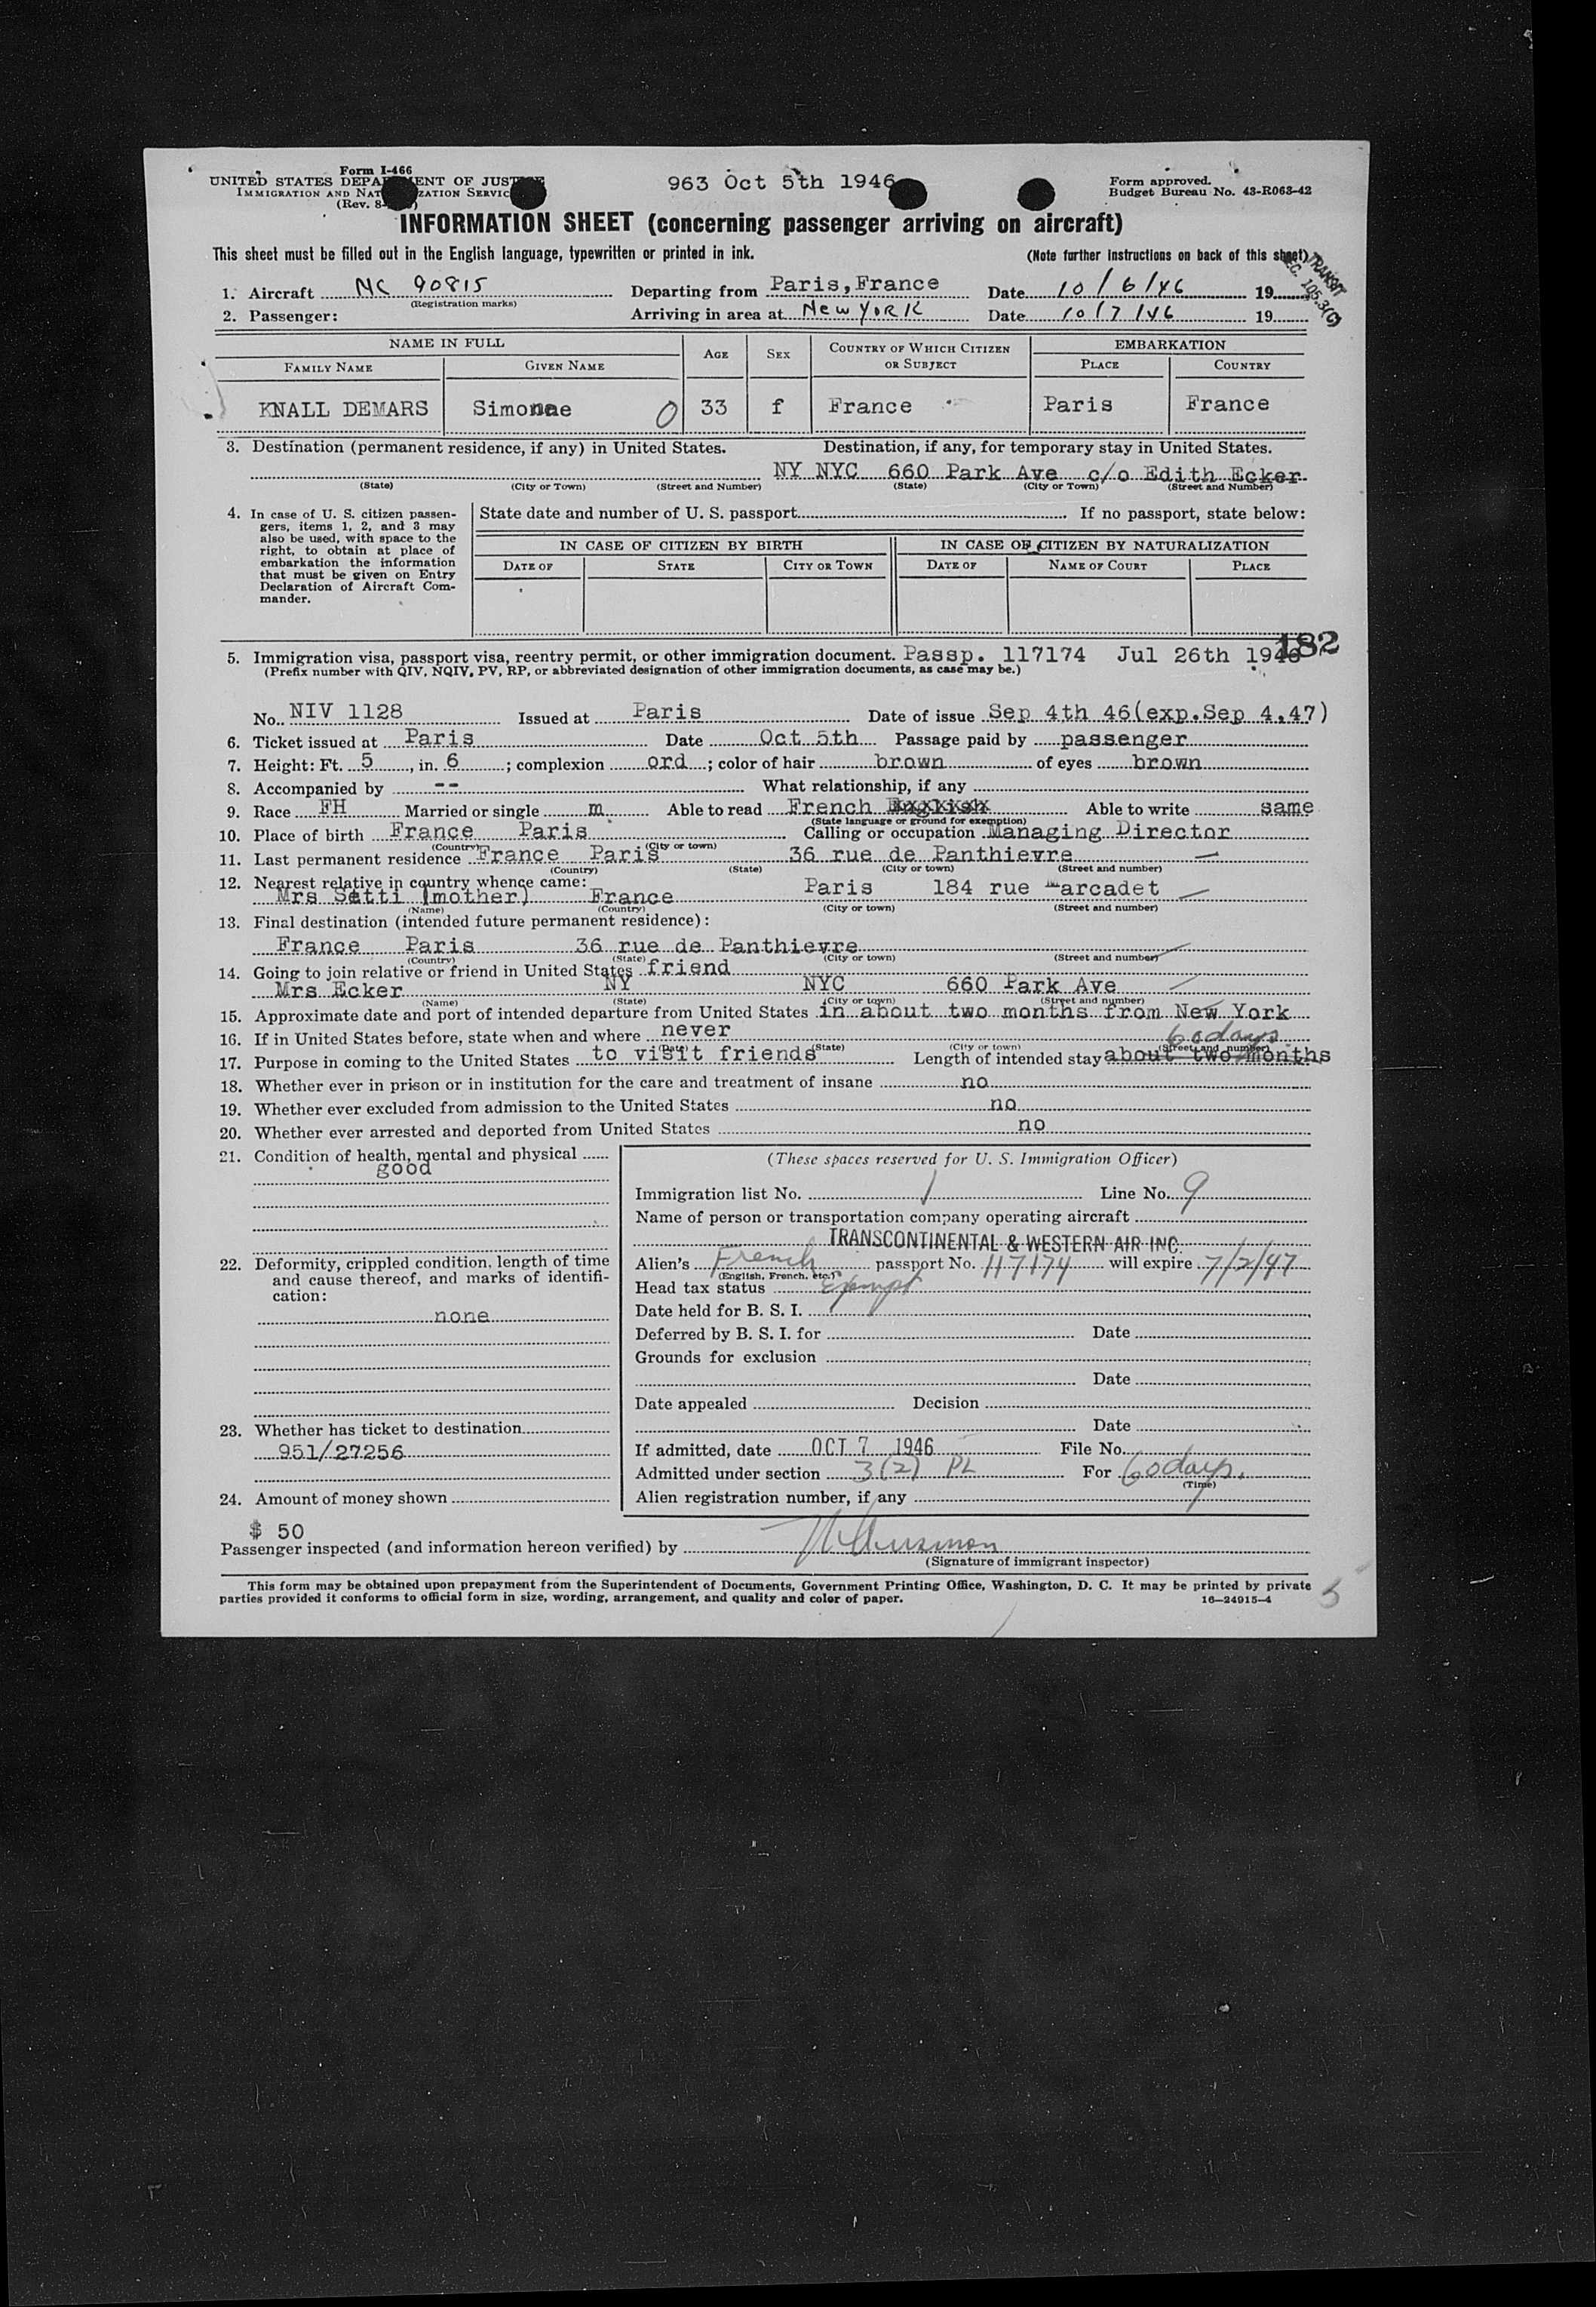 Form I-466
UNITED STATES DEPARTMENT OF JUSTICE
IMMIGRATION AND NATURALIZATION SERVICE
(Rev. 8-
963 Oct 5th 1946
Form approved.
Budget Bureau No. 43-R063-42
INFORMATION SHEET (concerning passenger arriving on aircraft)
This sheet must be filled out in the English language, typewritten or printed in ink.
(Note further instructions on back of this sheet)
TRANSIT
SEC. 105.3(C)
1. Aircraft NC 90815 Departing from Paris, France Date 10/6/46 19
(Registration marks)
2. Passenger: Arriving in area at New YORK Date 10/7/46 19
NAME IN FULL AGE SEX COUNTRY OF WHICH CITIZEN OR SUBJECT EMBARKATION
FAMILY NAME GIVEN NAME PLACE COUNTRY
KNALL DEMARS Simone 0 33 f France Paris France
3. Destination (permanent residence, if any) in United States. Destination, if any, for temporary stay in United States.
NY NYC 660 Park Ave c/o Edith Ecker
(State) (City or Town) (Street and Number) (State) (City or Town) (Street and Number)
4. In case of U. S. citizen passengers, items 1, 2, and 3 may also be used, with space to the right, to obtain at place of embarkation the information that must be given on Entry Declaration of Aircraft Commander.
State date and number of U. S. passport If no passport, state below:
IN CASE OF CITIZEN BY BIRTH IN CASE OF CITIZEN BY NATURALIZATION
DATE OF STATE CITY OR TOWN DATE OF NAME OF COURT PLACE
182
5. Immigration visa, passport visa, reentry permit, or other immigration document. Passp. 117174 Jul 26th 1946
(Prefix number with QIV, NQIV, PV, RP, or abbreviated designation of other immigration documents, as case may be.)
No. NIV 1128 Issued at Paris Date of issue Sep 4th 46(exp.Sep 4.47)
6. Ticket issued at Paris Date Oct 5th Passage paid by passenger
7. Height: Ft. 5, in. 6; complexion ord; color of hair brown of eyes brown
8. Accompanied by -- What relationship, if any
9. Race FH Married or single m Able to read French English Able to write same
(State language or ground for exemption)
10. Place of birth France Paris Calling or occupation Managing Director
(Country) (City or town)
11. Last permanent residence France Paris 36 rue de Panthievre
(Country) (State) (City or town) (Street and number)
12. Nearest relative in country whence came:
Mrs Setti (mother) France Paris 184 rue Marcadet
(Name) (Country) (City or town) (Street and number)
13. Final destination (intended future permanent residence):
France Paris 36 rue de Panthievre
(Country) (State) (City or town) (Street and number)
14. Going to join relative or friend in United States friend
Mrs Ecker NY NYC 660 Park Ave
(Name) (State) (City or town) (Street and number)
15. Approximate date and port of intended departure from United States in about two months from New York
16. If in United States before, state when and where never
(Date) (State) (City or town) (Street and number)
60 days
17. Purpose in coming to the United States to visit friends Length of intended stay about two months
18. Whether ever in prison or in institution for the care and treatment of insane no
19. Whether ever excluded from admission to the United States no
20. Whether ever arrested and deported from United States no
21. Condition of health, mental and physical
good
22. Deformity, crippled condition, length of time and cause thereof, and marks of identification:
none
23. Whether has ticket to destination
951/27256
24. Amount of money shown
$ 50
(These spaces reserved for U. S. Immigration Officer)
Immigration list No. 1 Line No. 9
Name of person or transportation company operating aircraft
TRANSCONTINENTAL & WESTERN AIR INC.
Alien's French passport No. 117174 will expire 7/2/47
(English, French, etc.)
Head tax status Exempt
Date held for B. S. I.
Deferred by B. S. I. for Date
Grounds for exclusion
Date
Date appealed Decision
Date
If admitted, date OCT 7 1946 File No.
Admitted under section 3(2) PL For 60 days.
(Time)
Alien registration number, if any
Passenger inspected (and information hereon verified) by
(Signature of immigrant inspector)
This form may be obtained upon prepayment from the Superintendent of Documents, Government Printing Office, Washington, D. C. It may be printed by private
parties provided it conforms to official form in size, wording, arrangement, and quality and color of paper.
16—24915-4
5